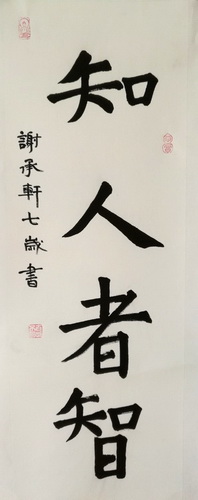 知人者智
謝承軒七歲書